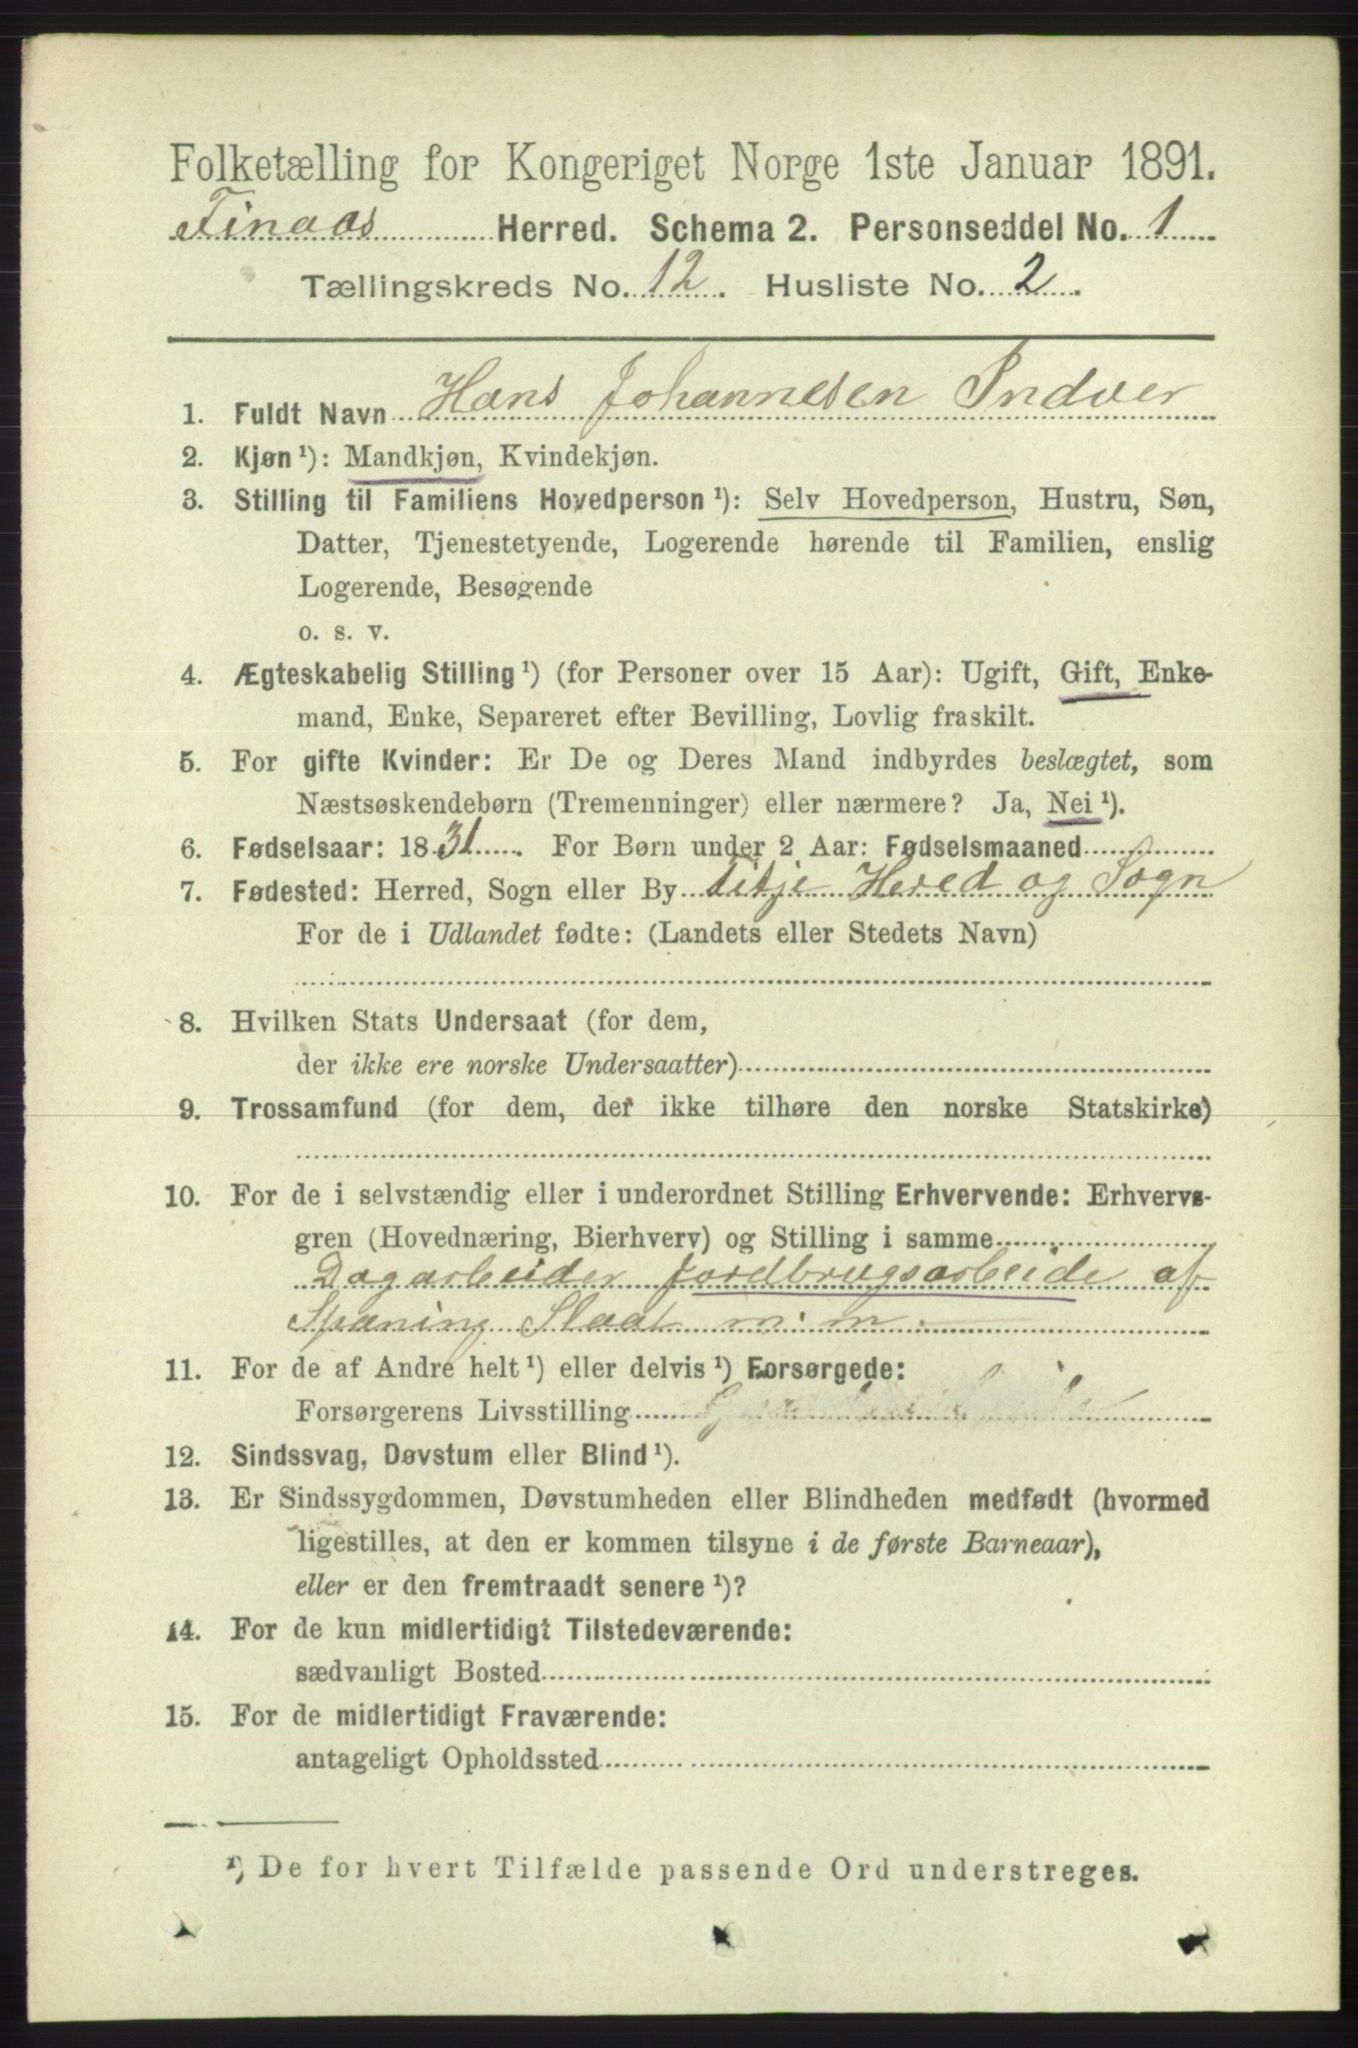 Folketælling for Kongeriget Norge 1ste Januar 1891.
Finaas Herred. Schema 2. Personseddel No. 1
Tællingskreds No. 12. Husliste No. 2.
1. Fuldt Navn Hans Johannesen Indvær
2. Kjøn¹): Mandkjøn, Kvindekjøn.
3. Stilling til Familiens Hovedperson¹): Selv Hovedperson, Hustru, Søn,
Datter, Tjenestetyende, Logerende hørende til Familien, enslig
Logerende, Besøgende
o. s. v.
4. Ægteskabelig Stilling¹) (for Personer over 15 Aar): Ugift, Gift, Enke-
mand, Enke, Separeret efter Bevilling, Lovlig fraskilt.
5. For gifte Kvinder: Er De og Deres Mand indbyrdes beslægtet, som
Næstsøskendebørn (Tremenninger) eller nærmere? Ja, Nei¹).
6. Fødselsaar: 1831. For Børn under 2 Aar: Fødselsmaaned
7. Fødested: Herred, Sogn eller By Hered og Sogn
For de i Udlandet fødte: (Landets eller Stedets Navn)
8. Hvilken Stats Undersaat (for dem,
der ikke ere norske Undersaatter)
9. Trossamfund (for dem, der ikke tilhøre den norske Statskirke)
10. For de i selvstændig eller i underordnet Stilling Erhvervende: Erhvervs-
gren (Hovednæring, Bierhverv) og Stilling i samme
Dagarbeider Jordbrugsarbeide af
Spaning Slaat m: m.
11. For de af Andre helt¹) eller delvis¹) Forsørgede:
Forsørgerens Livsstilling
12. Sindssvag, Døvstum eller Blind¹).
13. Er Sindssygdommen, Døvstumheden eller Blindheden medfødt (hvormed
ligestilles, at den er kommen tilsyne i de første Barneaar),
eller er den fremtraadt senere¹)?
14. For de kun midlertidigt Tilstedeværende:
sædvanligt Bosted
15. For de midlertidigt Fraværende:
antageligt Opholdssted
¹) De for hvert Tilfælde passende Ord understreges.